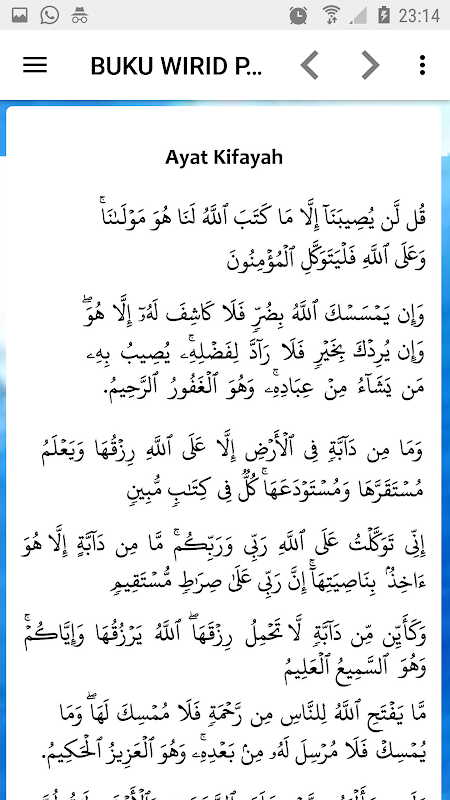 23:14
BUKU WIRID P...
Ayat Kifayah
قُل لَّن يُصِيبَنَآ إِلَّا مَا كَتَبَ ٱللَّهُ لَنَا هُوَ مَوْلَىٰنَاۚ
وَعَلَى ٱللَّهِ فَلْيَتَوَكَّلِ ٱلْمُؤْمِنُونَ
وَإِن يَمْسَسْكَ ٱللَّهُ بِضُرٍّ فَلَا كَاشِفَ لَهُۥٓ إِلَّا هُوَۖ
وَإِن يُرِدْكَ بِخَيْرٍ فَلَا رَآدَّ لِفَضْلِهِۦۚ يُصِيبُ بِهِۦ
مَن يَشَآءُ مِنْ عِبَادِهِۦۚ وَهُوَ ٱلْغَفُورُ ٱلرَّحِيمُ.
وَمَا مِن دَآبَّةٍ فِى ٱلْأَرْضِ إِلَّا عَلَى ٱللَّهِ رِزْقُهَا وَيَعْلَمُ
مُسْتَقَرَّهَا وَمُسْتَوْدَعَهَاۚ كُلٌّ فِى كِتَٰبٍ مُّبِينٍ
إِنِّى تَوَكَّلْتُ عَلَى ٱللَّهِ رَبِّى وَرَبِّكُمۚ مَّا مِن دَآبَّةٍ إِلَّا هُوَ
ءَاخِذٌۢ بِنَاصِيَتِهَآۚ إِنَّ رَبِّى عَلَىٰ صِرَٰطٍ مُّسْتَقِيمٍ
وَكَأَيِّن مِّن دَآبَّةٍ لَّا تَحْمِلُ رِزْقَهَاۖ ٱللَّهُ يَرْزُقُهَا وَإِيَّاكُمْۚ
وَهُوَ ٱلسَّمِيعُ ٱلْعَلِيمُ
مَّا يَفْتَحِ ٱللَّهُ لِلنَّاسِ مِن رَّحْمَةٍ فَلَا مُمْسِكَ لَهَاۖ وَمَا
يُمْسِكْ فَلَا مُرْسِلَ لَهُۥ مِنۢ بَعْدِهِۦۚ وَهُوَ ٱلْعَزِيزُ ٱلْحَكِيمُ.